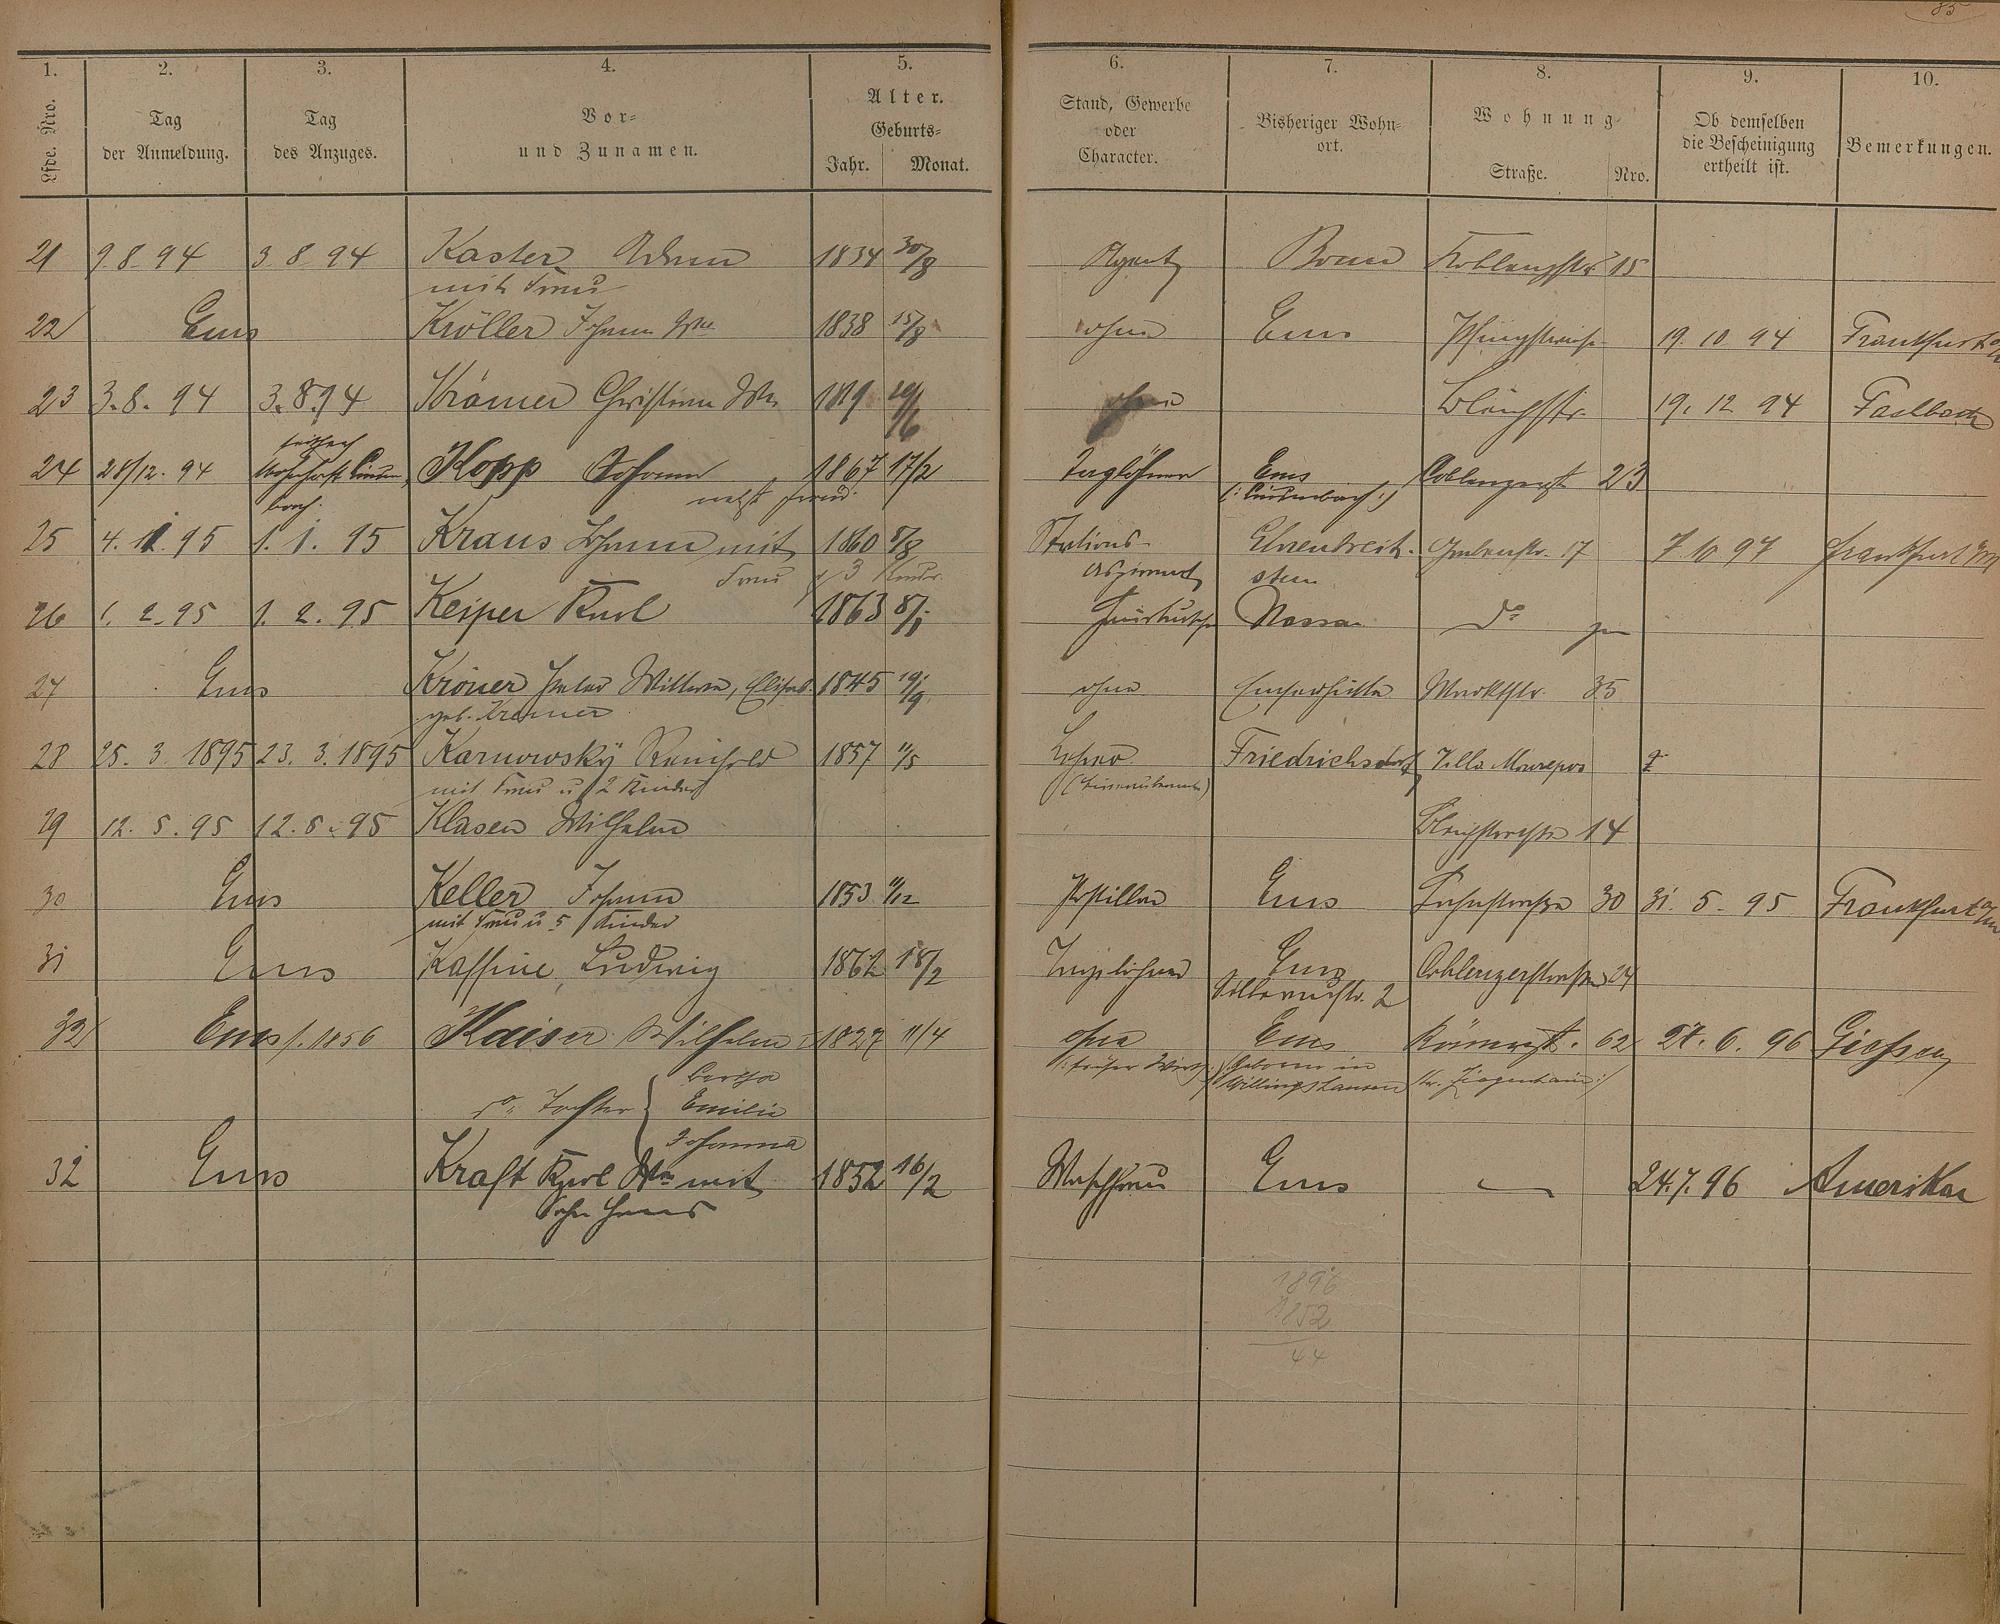 85
1. 2. 3. 4. 5. 6. 7. 8. 9. 10.
Lfde. Nro. Tag der Anmeldung. Tag des Anzuges. Vor- und Zunamen. Alter. Geburts- Jahr. Monat. Stand, Gewerbe oder Character. Bisheriger Wohn- ort. Wohnung Straße. Nro. Ob demselben die Bescheinigung ertheilt ist. Bemerkungen.
21 9.8.94 3 8 94 Kaster Adam 1834 30/8 Agent Bonn Koblenzstr 15
mit Frau
22 Ems Kröller Johann Wwe 1838 15/8 ohne Ems 19. 10 94 Frankfurt a/M
23 3.8.94 3.8.94 Krämer Christian Ww. 1819 ohne Bleichstr. 19. 12 94 Fachbach
24 28/12.94 Kopp Johann 1867 17/2 Taglöhner Ems Coblenzerst 23
bach. nebst (:Lindenbach:)
25 4.1.95 1.1.95 Kraus Johann mit 1860 8/8 Stations- Ehrenbreit- Grabenstr. 17 7.10 97 Frankfurt a/M
Frau u 3 Kinder. Aspirant stein
26 1.2.95 1.2.95 Keiper Karl 1863 8/1 Nassau do
27 Ems Kröner Peter Wittwe, Elisab. 1845 19/9 ohne Emserhütte Marktstr. 35
geb. Kramer
28 25.3.1895 23.3.1895 Karnowsky Reinhold 1857 11/5 Lehrer Friedrichsdorf Villa Monrepos
mit Frau u 2 Kinder
29 12.5.95 12.5.95 Klasen Wilhelm Bleichstraße 14
30 Ems Keller Johann 1853 11/12 Postillon Ems Lahnstraße 30 31.5.95 Frankfurt a/M
mit Frau u 5 Kinder
31 Ems Kassine, Ludwig 1862 18/2 Taglöhner Ems Coblenzerstraße 24
Silberaustr. 2
32 Ems s. 1856 Kaiser Wilhelm 1827 11/4 ohne Ems Römerst. 62 27.6.96 Giessen
(:früher Wirth:) (:geboren in
Willingshausen Kr. Ziegenhain:)
do. Tochter { Bertha
Emilie
Johanna
32 Ems Kraft Karl Ww mit 1852 16/2 Waschfrau Ems — 24.7.96 Amerika
Sohn Hans
1896
1852
44